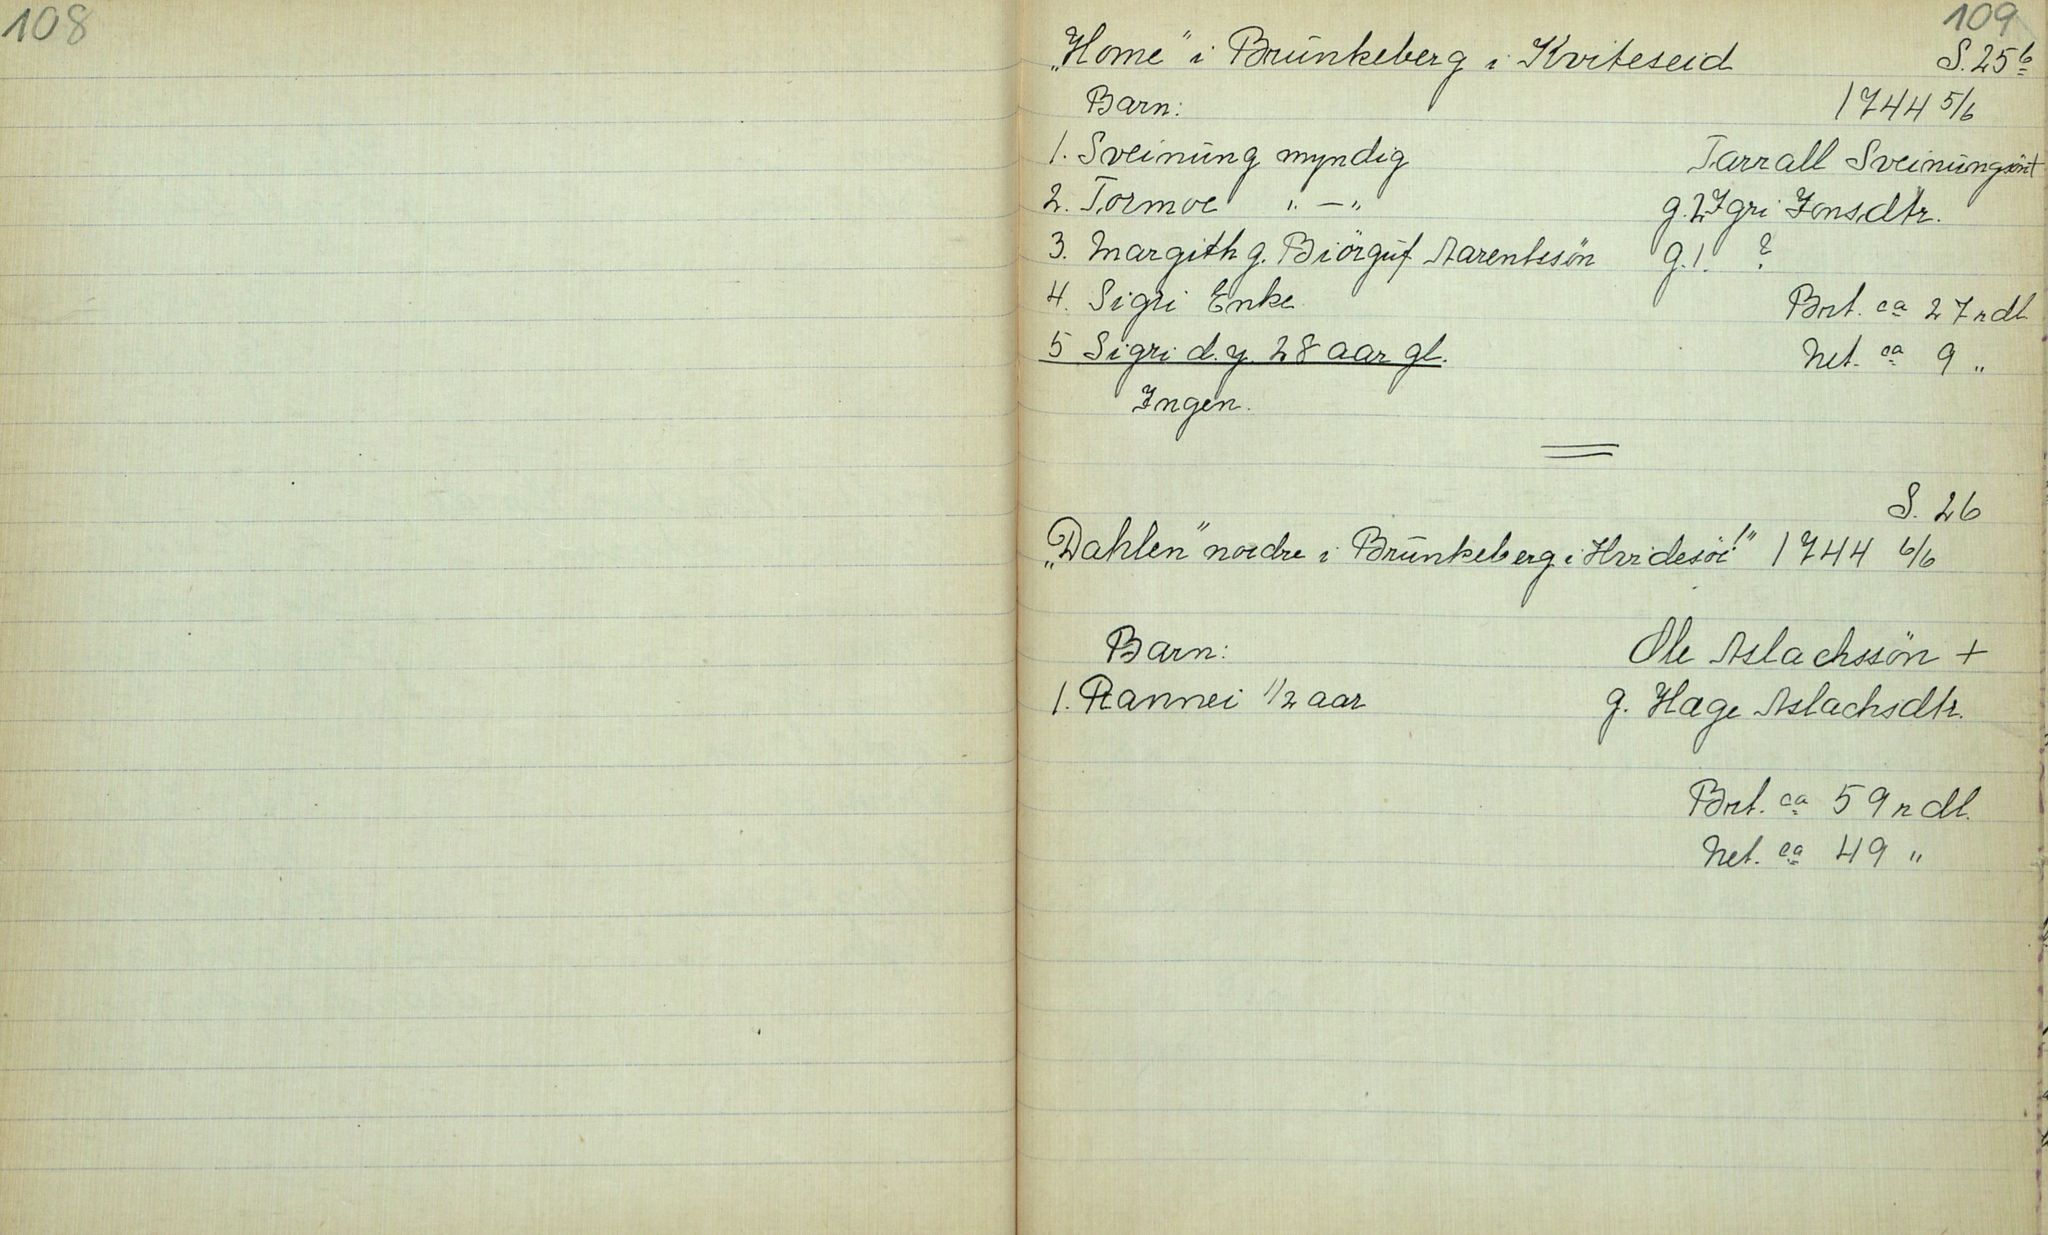 108
109
„Home" i Brunkeberg i Kviteseid S. 25 b
Barn: 1744 5/6
1. Sveinung myndig Tarrall Sveinungsön +
2. Tormoe " — " g. 2 Igri Jonsdtr.
3. Margith g. Biörguf Aarentssön g. 1. ?
4. Sigri Enke Brt. ca 27 rdl
5 Sigri d. y. 28 aar gl. Net. ca 9 "
Ingen.
S. 26
„Dahlen" nordre i Brunkeberg i Hvidesöe!" 1744 6/6
Barn: Ole Aslachssön +
1. Rannei 1/2 aar g. Hæge Aslachsdtr.
Brt. ca 59 rdl.
Net. ca 49 "